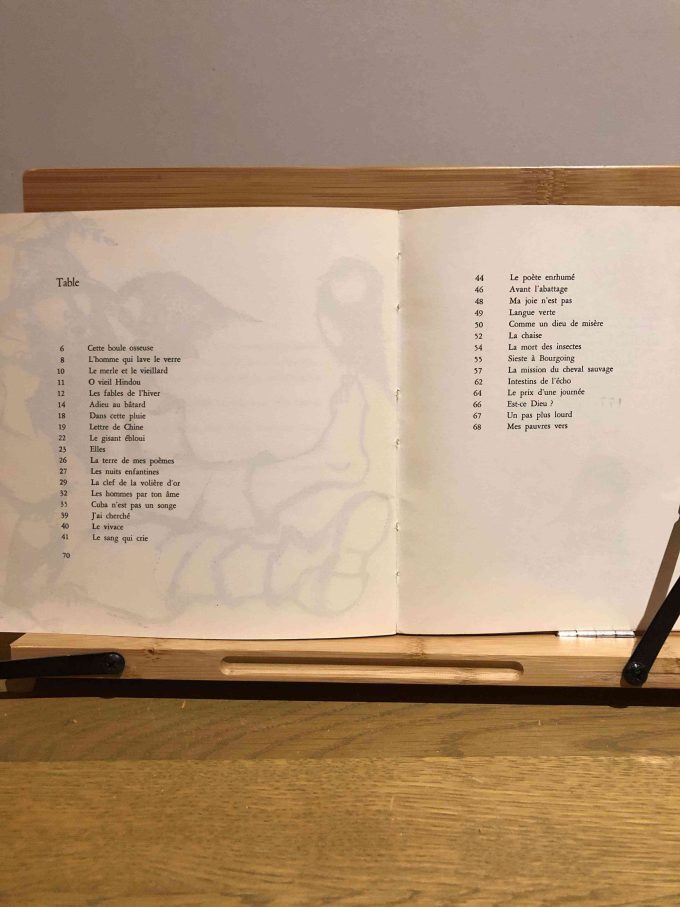 Table
6 Cette boule osseuse
8 L'homme qui lave le verre
10 Le merle et le vieillard
11 O vieil Hindou
12 Les fables de l'hiver
14 Adieu au bâtard
18 Dans cette pluie
19 Lettre de Chine
22 Le gisant ébloui
23 Elles
26 La terre de mes poèmes
27 Les nuits enfantines
29 La clef de la volière d'or
32 Les hommes par ton âme
35 Cuba n'est pas un songe
39 J'ai cherché
40 Le vivace
41 Le sang qui crie
70
44 Le poète enrhumé
46 Avant l'abattage
48 Ma joie n'est pas
49 Langue verte
50 Comme un dieu de misère
52 La chaise
54 La mort des insectes
55 Sieste à Bourgoing
57 La mission du cheval sauvage
62 Intestins de l'écho
64 Le prix d'une journée
66 Est-ce Dieu ?
67 Un pas plus lourd
68 Mes pauvres vers